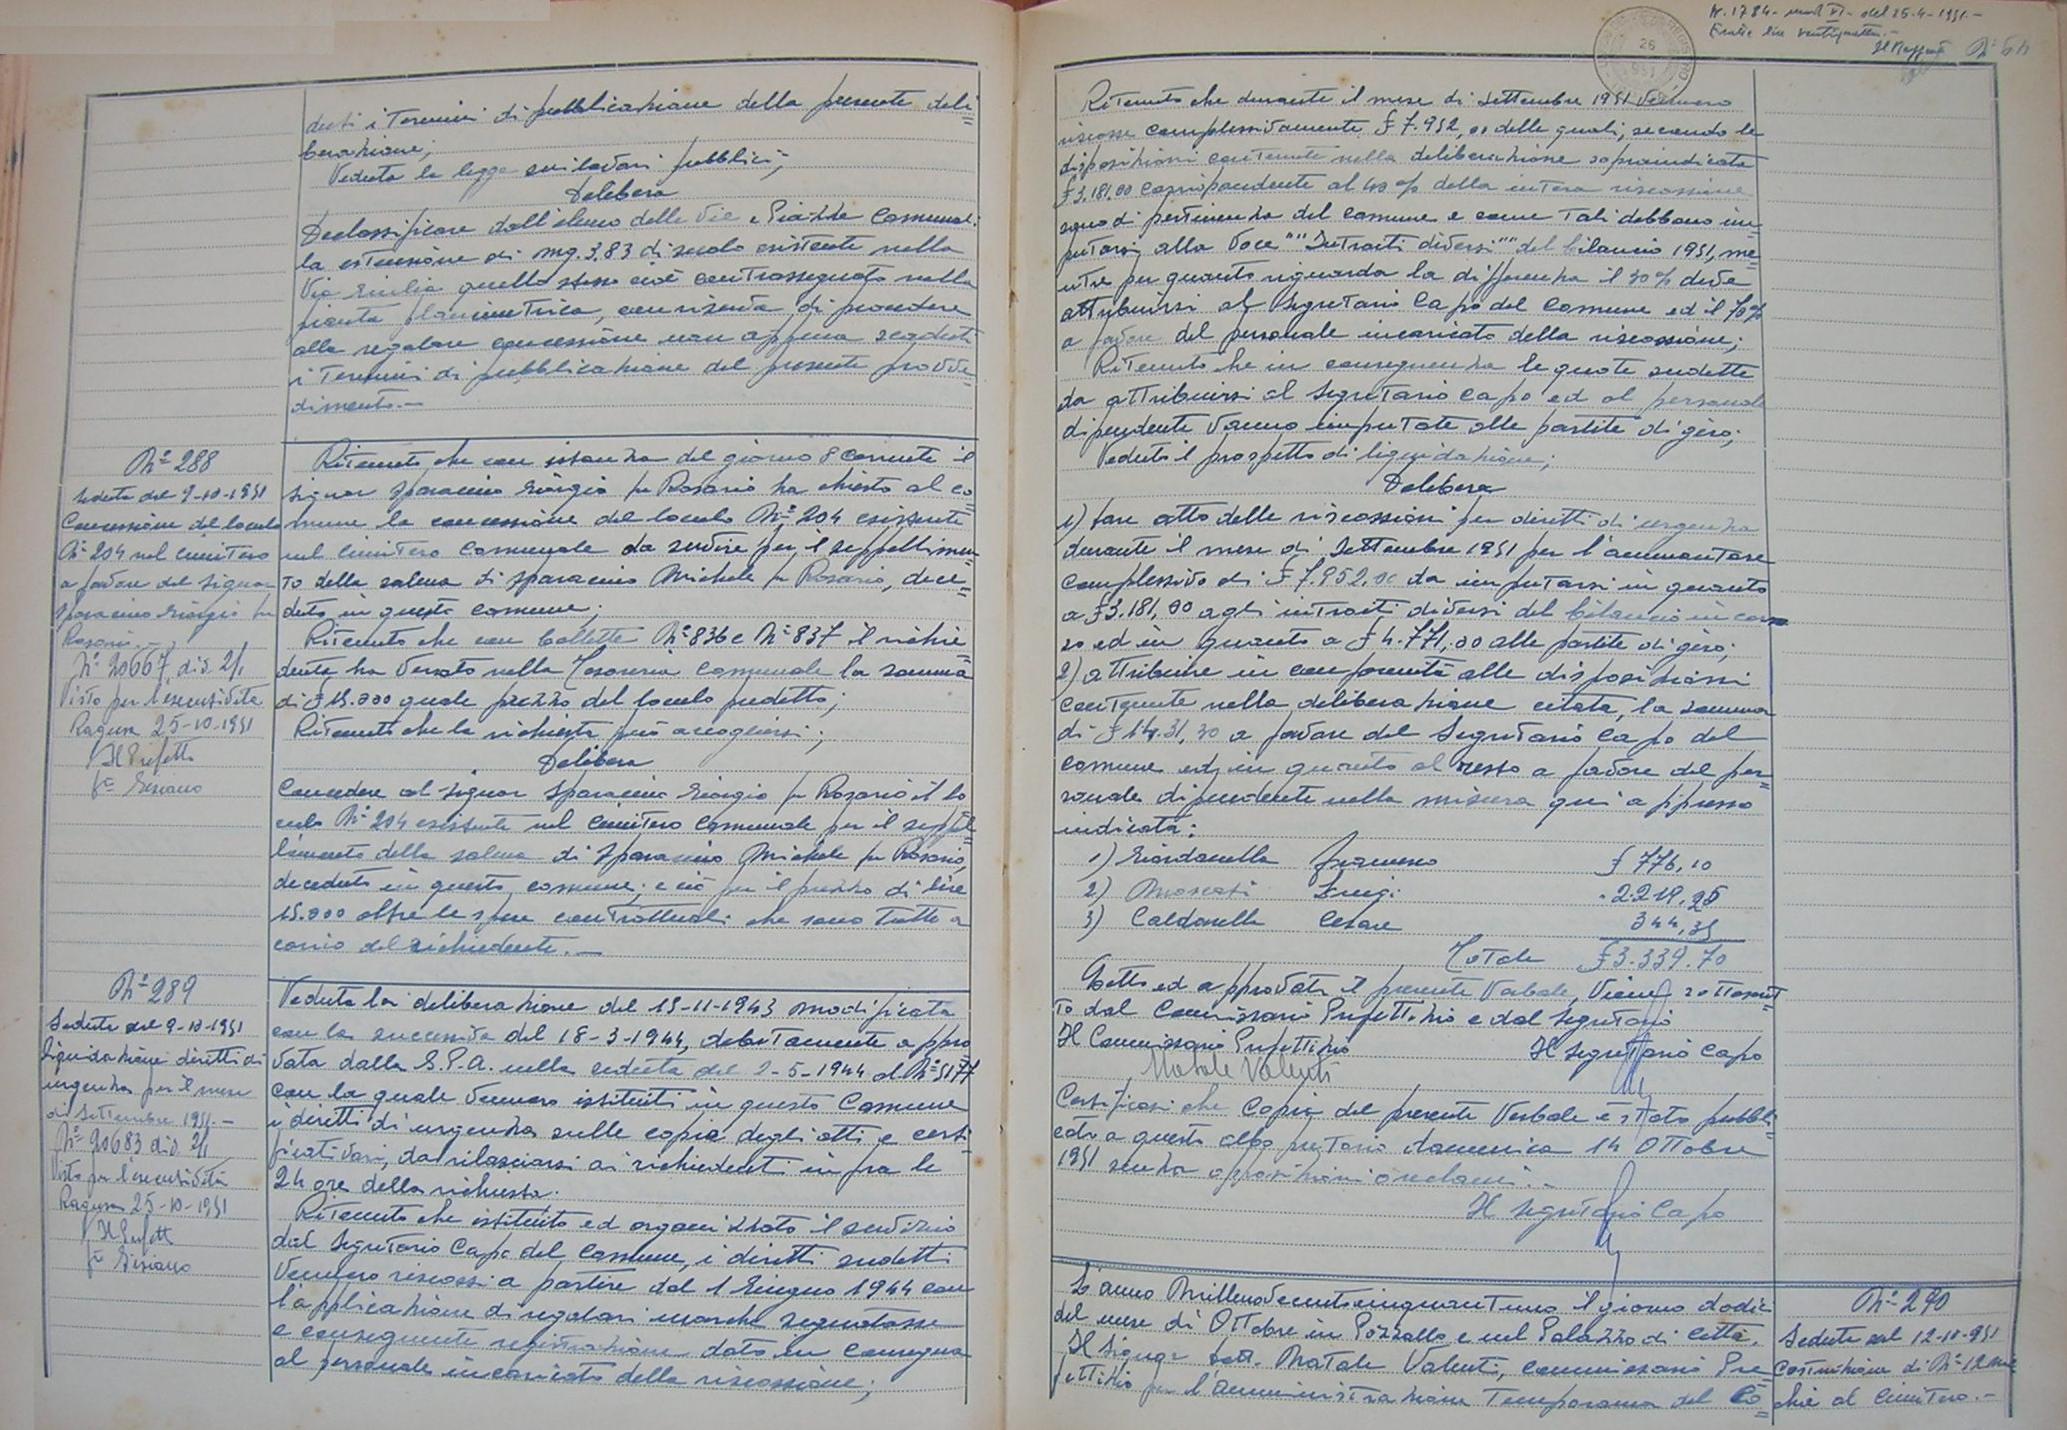 duti i Termini di pubblicazione della presente deli=
berazione;
Veduta la legge sui lavori pubblici;
Delibera
Declassificare dall'elenco delle Vie e Piazze Comunali
la estensione di mq. 3,83 di suolo esistente nella
Via Emilia quello stesso cioè contrassegnato nella
pianta planimetrica, con riserva di procedere
alla regolare concessione non appena scaduti
i Termini di pubblicazione del presente provve=
dimento.-
Nº 288
Seduta del 9-10-1951
Concessione del loculo
Nº 204 nel cimitero
a favore del Signor
Sparacino Giorgio fu
Rosario.-
Nº 20667 div. 2/1
Visto per l'esecutività
Ragusa 25-10-1951
Il Prefetto
fto
Ritenuto che con istanza del giorno 8 corrente il
Signor Sparacino Giorgio fu Rosario ha chiesto al co=
mune la concessione del loculo Nº 204 esistente
nel cimitero Comunale da servire per il seppellimen=
to della salma di Sparacino Michele fu Rosario, dece=
duto in questo comune;
Ritenuto che con bollette Nº 836 e Nº 837 il richie=
dente ha versato nella Tesoreria comunale la somma
di £ 15.000 quale prezzo del loculo predetto;
Ritenuto che la richiesta può accogliersi;
Delibera
Concedere al Signor Sparacino Giorgio fu Rosario il lo
culo Nº 204 esistente nel Cimitero Comunale per il seppel=
limento della salma di Sparacino Michele fu Rosario,
deceduto in questo comune; e ciò per il prezzo di lire
15.000 oltre le spese contrattuali che sono tutte a
carico del richiedente.-
Nº 289
Seduta del 9-10-1951
Liquidazione diritti di
urgenza per il mese
di Settembre 1951.-
Nº 20683 div. 2/1
Visto per l'esecutività
Ragusa 25-10-1951
Il Prefetto
fto
Veduta la deliberazione del 15-11-1943 modificata
con la successiva del 18-3-1944, debitamente appro
vata dalla G.P.A. nella seduta del 2-5-1944 al Nº 5177
con la quale vennero istituiti in questo Comune
i diritti di urgenza sulle copie degli atti e certi=
ficati vari, da rilasciarsi ai richiedenti infra le
24 ore della richiesta.
Ritenuto che istituito ed organizzato il servizio
dal Segretario Capo del Comune, i diritti sudetti
vennero riscossi a partire dal 1 Giugno 1944 con
l'applicazione di regolari marche segnatasse
e conseguente registrazione dato in consegna
al personale incaricato della riscossione;
N. 1784- mod VI- del 25-4-1951.-
Esatte lire
Ritenuto che durante il mese di Settembre 1951 vennero
riscosse complessivamente £ 7.952,00 delle quali, secondo le
disposizioni contenute nella deliberazione sopraindicata
£ 3.181,00 corrispondente al 40% della intera riscossione
sono di pertinenza del comune e come tali debbono im=
putarsi alla voce ""Introiti diversi"" del bilancio 1951, me=
ntre per quanto riguarda la differenza il 30% deve
attribuirsi al Segretario Capo del Comune ed il 70%
a favore del personale incaricato della riscossione;
Ritenuto che in conseguenza le quote sudette
da attribuirsi al Segretario Capo ed al personale
dipendente vanno imputate alle partite di giro;
Veduto il prospetto di liquidazione;
Delibera
1) fare atto delle riscossioni per diritti di urgenza
durante il mese di Settembre 1951 per l'ammontare
complessivo di £ 7.952,00 da imputarsi in quanto
a £ 3.181,00 agli introiti diversi del bilancio in cor=
so ed in quanto a £ 4.771,00 alle partite di giro;
2) attribuire in conformità alle disposizioni
contenute nella deliberazione citata, la somma
di £ 14.31,30 a favore del Segretario Capo del
comune ed in quanto al resto a favore del per=
sonale dipendente nella misura qui appresso
indicata:
1) Giardanella Francesco £ 776,10
2) Moscati Luigi . 2219,25
3) Caldarella Cesare 344,35
Totale £ 3.339.70
Letto ed approvato il presente verbale, viene sottoscrit=
to dal Commissario Prefettizio e dal Segretario
Il Commissario Prefettizio Il Segretario Capo
Natale Valenti
Certificasi che copia del presente verbale è stato pubbli=
cato a questo albo pretorio domenica 14 Ottobre
1951 senza opposizioni o reclami.-
Il Segretario Capo
L'anno Millenovecentocinquantuno il giorno dodici
del mese di Ottobre in Pozzallo e nel Palazzo di Città.
Il Signor Dott. Natale Valenti, Commissario Pre=
fettizio per l'amministrazione Temporanea del Co=
Nº 290
Seduta del 12-10-951
Costruzione di Nº 12
chie al Cimitero.-